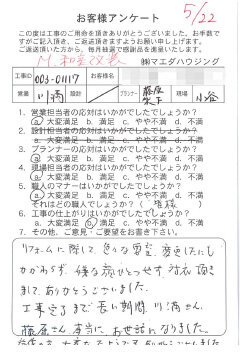 お客様アンケート 5/22
この度は工事のご用命を頂きありがとうございました。お手数で
すがご記入頂き、ご返送頂いたいますようお願い申し上げます。
ご返送頂いた方から、毎月抽選で感謝品を進呈いたします。
M.和室改装 ㈱マエダハウジング
工事ID 003-01117 お客様名
営業 設計 プランナー 藤原 現場 小谷
1. 営業担当者の応対はいかがでしたでしょうか?
a. 大変満足 b. 満足 c. やや不満 d. 不満
2. 設計担当者の応対はいかがでしたでしょうか?
a. 大変満足 b. 満足 c. やや不満 d. 不満
3. プランナーの応対はいかがでしたでしょうか?
a. 大変満足 b. 満足 c. やや不満 d. 不満
4. 現場担当者の応対はいかがでしたでしょうか?
a. 大変満足 b. 満足 c. やや不満 d. 不満
5. 職人のマナーはいかがでしたでしょうか?
a. 大変満足 b. 満足 c. やや不満 d. 不満
それはどの職人でしょうか? ( 皆様 )
6. 工事の仕上がりはいかがでしたでしょうか?
a. 大変満足 b. 満足 c. やや不満 d. 不満
7. その他、ご意見・ご要望をお書き下さい。
リフォームに際して、色々な要望、変更にも
かかわらず、嫌な顔ひとつせず、対応頂き
ましてありがとうございます。
工事完了まで長い期間、
藤原さん 本当に お世話になりました。